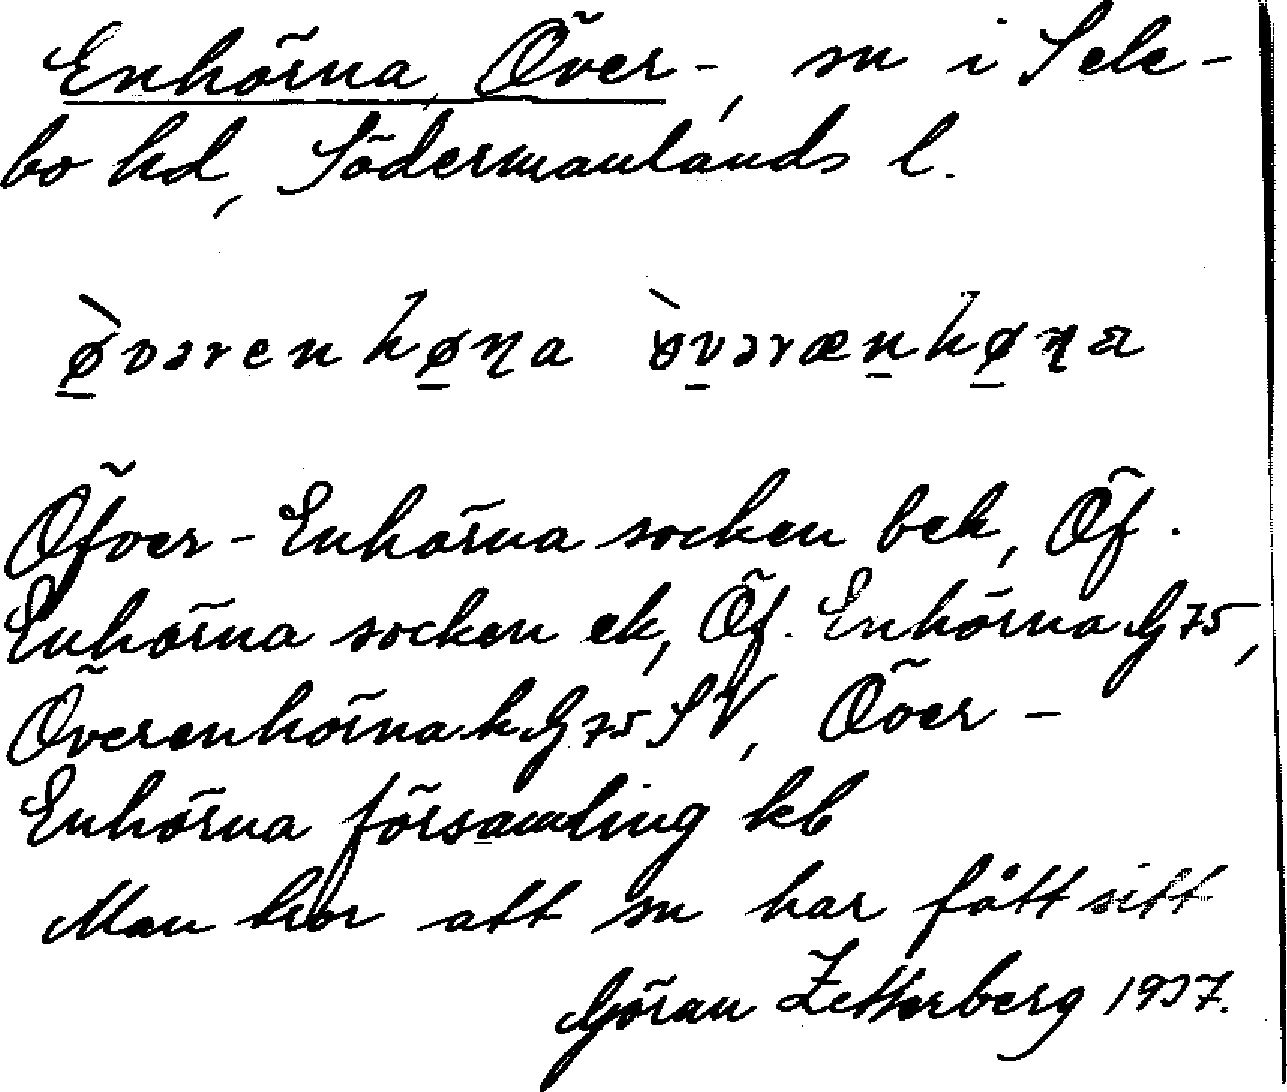 Enhörna, Över-, sn i Sele-
bo hd, Södermanlands l.
ø̀vərenhøɳa ɵ̀vərænhøɳa
Öfver-Enhörna socken bek, Öf.
Enhörna socken ek, Öf. Enhörna G 75,
Överenhörna k. G 75 SV, Över-
Enhörna församling kb
Man tror att sn har fått sitt
Göran Zetterberg 1937.